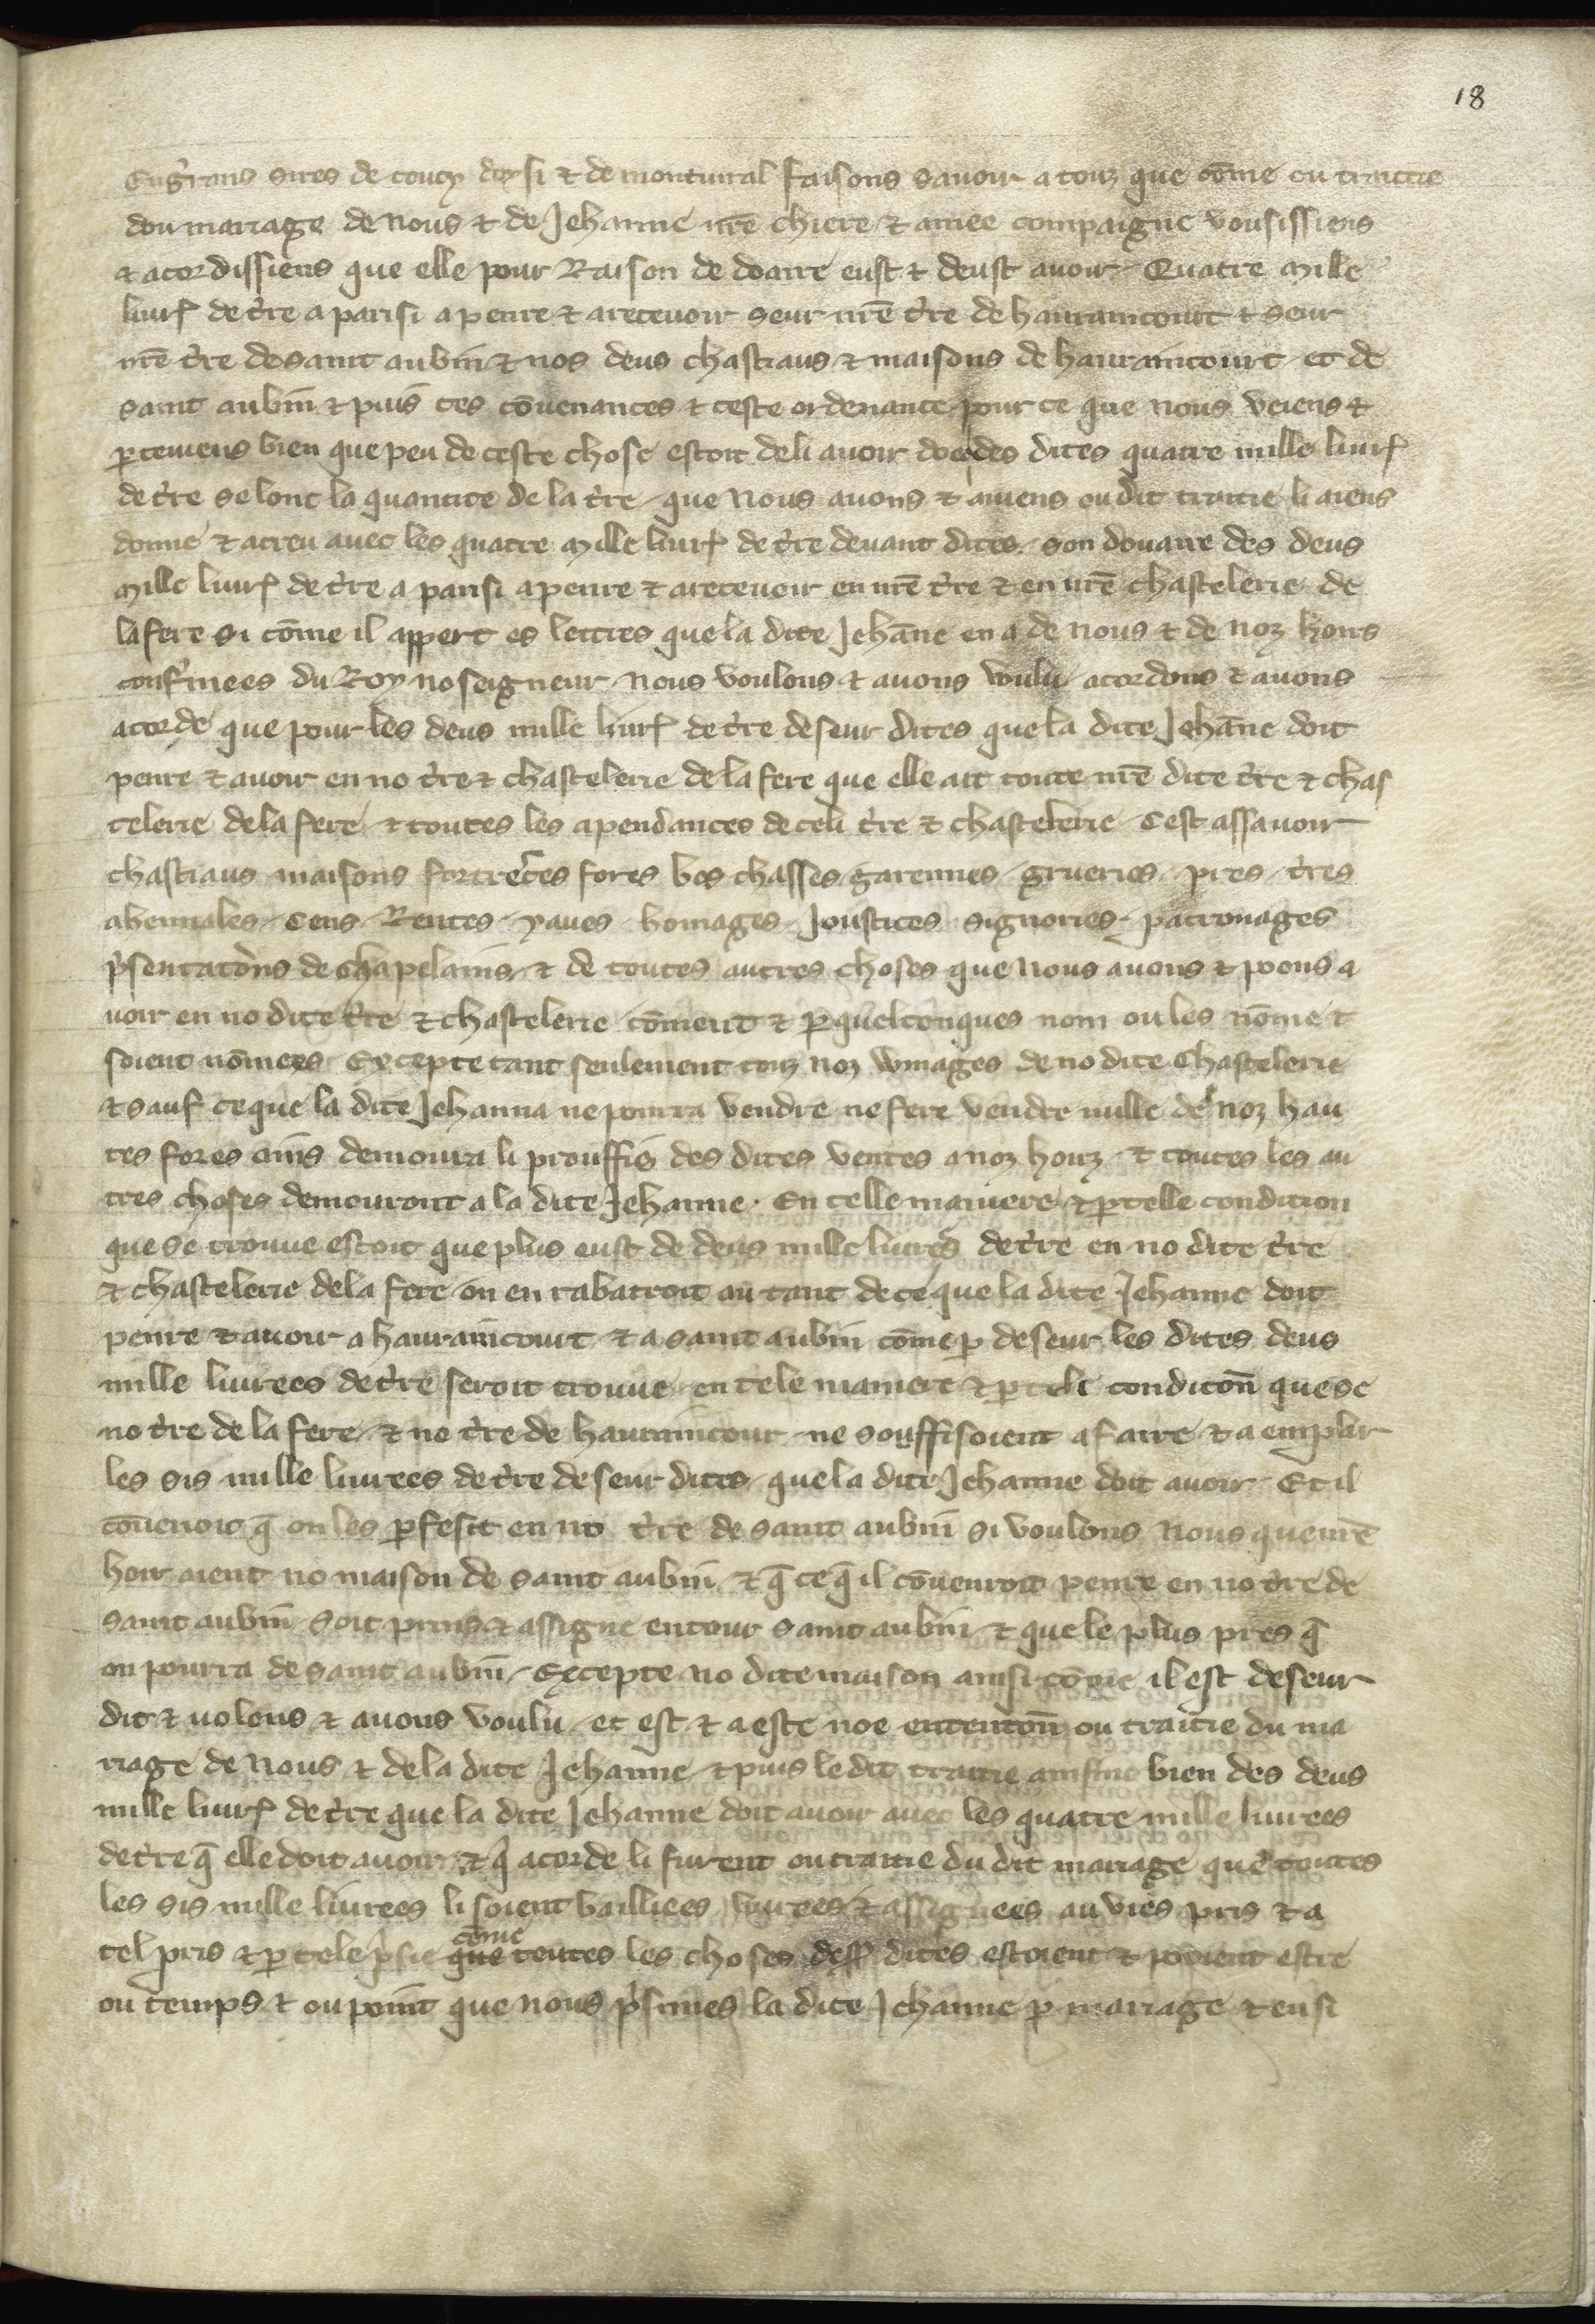 18
Engˀrans sires de coucy doysi ⁊ de montmiral faisons sauoir a touz que cōme ou traitie
dou mariage de nous ⁊ de Jehanne nrē chiere ⁊ amee compaigne vousissiens
⁊ acordissiens que elle pour Raison de doaire eust ⁊ deust auoir Quatre mille
liurꝭ de tˀre a parisi a penre ⁊ a receuoir seur nrē tˀre de haurincourt ⁊ seur
nrē tˀre de saint aubin ⁊ nos deus chastiaus ⁊ maisons de haurincourt et de
saint aubin ⁊ puis ces cōuenances ⁊ ceste ordenance pour ce que nous veiens ⁊
ꝑceuiens bien que peu de ceste chose estoit de li auoir doe des dites quatre mille liurꝭ
de tˀre selonc la quantite de la tˀre que nous auons ⁊ auiens ou dit traitie li aiens
donne ⁊ acreu auec les quatre mille liurꝭ de tˀre deuant dites son douaire des deus
mille liurꝭ de tˀre a parisi a penre ⁊ a receuoir en nrē tˀre ⁊ en nrē chastelerie de
la fere si cōme il appert es lettres que la dite Jehāne en a de nous ⁊ de noz hoirs
confˀmees du Roy no seigneur nous voulons ⁊ auons voulu acordons ⁊ auons
acorde que pour les deus mille liurꝭ de tˀre deseur dites que la dite Jehāne doit
penre ⁊ auoir en no tˀre ⁊ chastelerie de la fere que elle ait toute nrē dite tˀre ⁊ chas
telerie de la fere ⁊ toutes les apendances de celi tˀre ⁊ chastelerie Cest assauoir
chastiaus maisons fortreces fores bos chasses garennes grueries pres tˀres
ahennales Cens Rentes yaues homages Joustices signories patronages
pˀsentatōns de chapelains ⁊ de toutes autres choses que nous auons ⁊ poons a
uoir en no dite tˀre ⁊ chastelerie cōment ⁊ ꝑ quelcenques nom on les nōme ⁊
soient nōmees Excepte tant seulement touz noz winages de no dite Chastelerie
⁊ sauf ce que la dite Jehanna ne pourra vendre ne fere vendre nulle de noz hau
tes fores ains demoura li prouffis des dites ventes a noz hoirz ⁊ toutes les au
tres choses demouront a la dite Jehanne. En celle maniere ⁊ ꝑ celle condition
que se trouue estoit que plus eust de deus mille liurees de tˀre en no dite tˀre
⁊ chastelerie de la fere on en rabatroit autant de ce que la dite Jehanne doit
penre ⁊ auoir a haurincourt ⁊ a saint aubin cōme ꝑ deseur les dites deus
mille liurees de tˀre seroit trouue en tele maniere ⁊ ꝑ teli conditōn que se
no tˀre de la fere ⁊ no tˀre de haurincour ne souffisoient a faire ⁊ a emplir
les sis mille liurees de tˀre deseur dites que la dite Jehanne doit auoir Et il
cōuenoit q̄ on les ꝑfesit en no tˀre de saint aubin si voulons nous que nrē
hoir aient no maison de saint aubin ⁊ q̄ ce q̄ il cōuenroit penre en no tˀre de
saint aubin soit prins ⁊ assigne entour saint aubin ⁊ que le plus pres q̄
on pourra de saint aubin Excepte no dite maison ainsi cōme il est deseur
dit ⁊ uolons ⁊ auons voulu et est ⁊ a este noe ententōn ou traitie du ma
riage de nous ⁊ de la dite Jehanne ⁊ puis le dit traitie ausinc bien des deus
mille liurꝭ de tˀre que la dite Jehanne doit auoir auec les quatre mille liurees
de tˀre q̄ elle doit auoir ⁊ q̄ acorde li furent ou traitie du dit mariage que toutes
les sis mille liurees li soient bailliees liurees ⁊ assignees au vies pris ⁊ a
tel pris ⁊ ꝑ tele pˀsie que cōme toutes les choses dess dites estoient ⁊ pooient estre
ou temps ⁊ ou point que nous pˀsimes la dite Jehanne ꝑ mariage ⁊ ensi